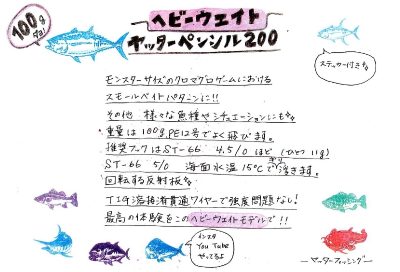 100g だよ!
ヘビーウェイト
ヤッターペンシル200
ステッカー付き
モンスターサイズのクロマグロゲームにおける
スモールベイトパターンに!!
その他 様々な魚種やシチュエーションにも
重量は100g PE12号でよく飛びます。
推奨フックはST-66 4.5/0 ほど (ひとつ 11g)
ST-66 5/0 海面水温15℃でギリ浮きます。
回転する反射板
TIG溶接済貫通ワイヤーで強度問題なし!
最高の体験をこのヘビーウェイトモデルで!!
インスタ
YouTube
やってるよ
ヤッターフィッシング